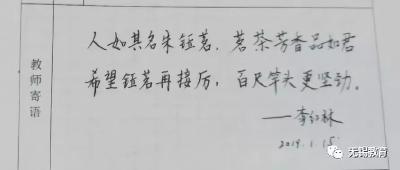 教师寄语
人如其名朱钰茗，茗茶芳香品如君
希望钰茗再接厉，百尺竿头更坚劲。
——李红林
2019.1.15
无锡教育